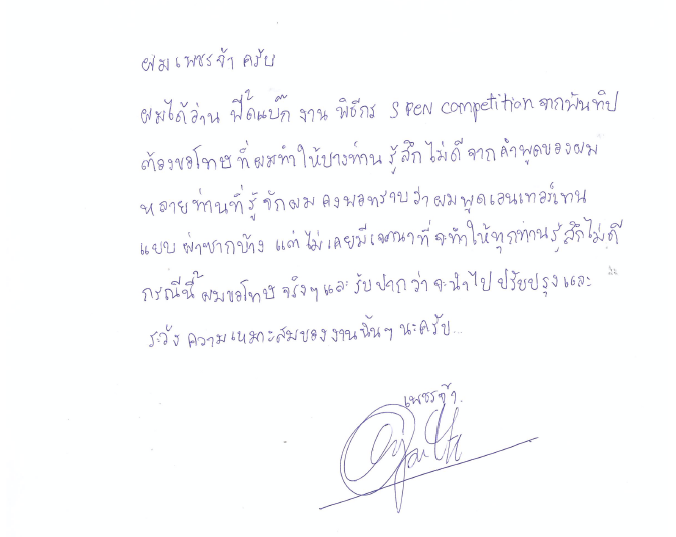 ผมเพชรจ้า ครับ
ผมได้อ่าน ฟี้ดแบ๊ก งาน พิธีกร S PEN competition จากพันทิป
ต้องขอโทษที่ผมทำให้บางท่าน รู้สึกไม่ดี จาก คำพูดของผม
หลายท่านที่รู้จักผม คงพอทราบว่าผมพูดเอนเทอร์เทน
แบบ ผ่าซากบ้าง แต่ ไม่เคยมีเจตนาที่จะทำให้ทุกท่านรู้สึกไม่ดี
กรณีนี้ ผมขอโทษ จริงๆ และ รับปากว่า จะนำไป ปรับปรุงและ
ระวัง ความเหมาะสมของงานนั้นๆ นะครับ...
เพชรจ้า.